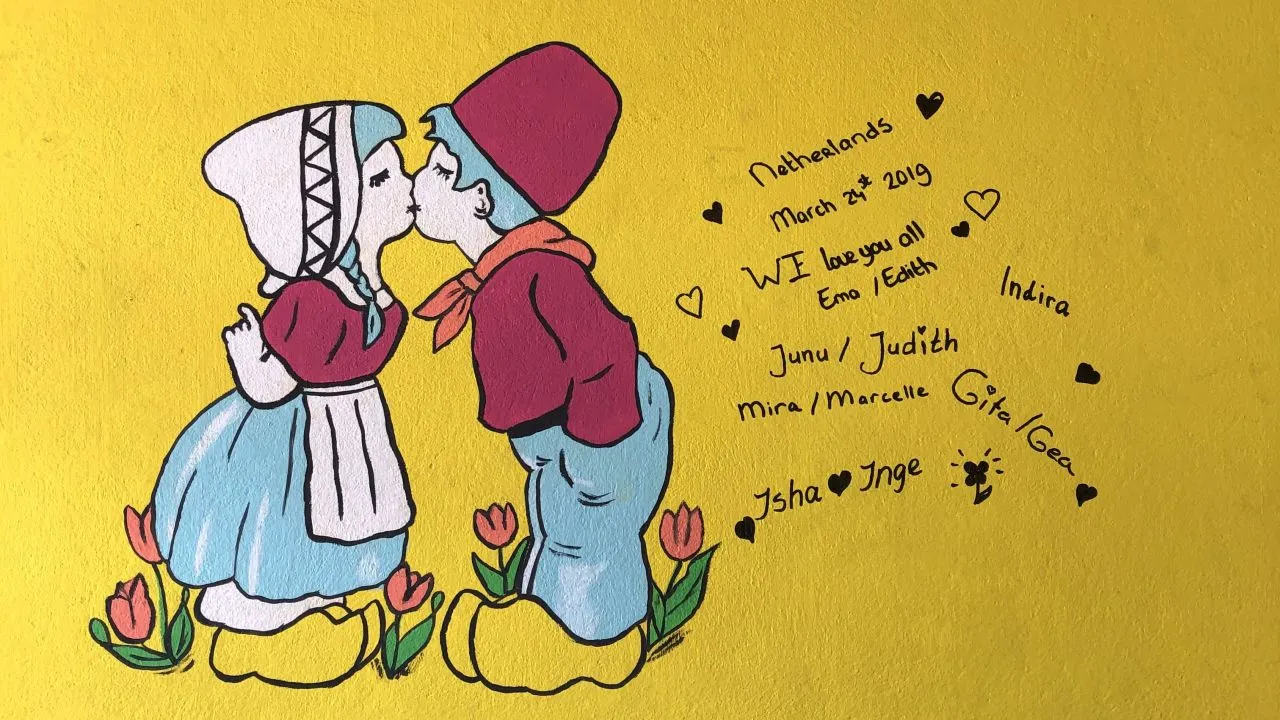 Netherlands
March 24st 2019
WI love you all
Ema / Edith
Indira
Junu / Judith
Mira / Marcelle
Gita / Gea
Isha ♥ Inge